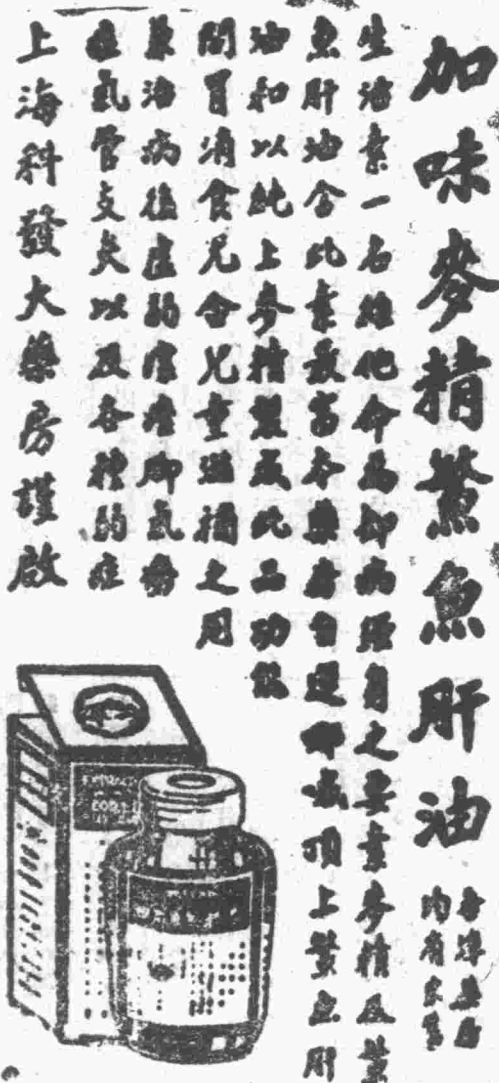 加味麥精鰵魚肝油
各埠藥房
均有出售
生活素一名維他命為却病強身之要素麥精及鰵
魚肝油含此素最富本藥房自運挪威頂上鰵魚肝
油和以純上麥精製成此品功能
開胃消食兄合兒童滋補之用
兼治病後虛弱瘡癆脚氣勞
症氣管支炎以及各種弱症
上海科發大藥房謹啟
EXTRACT
COD L